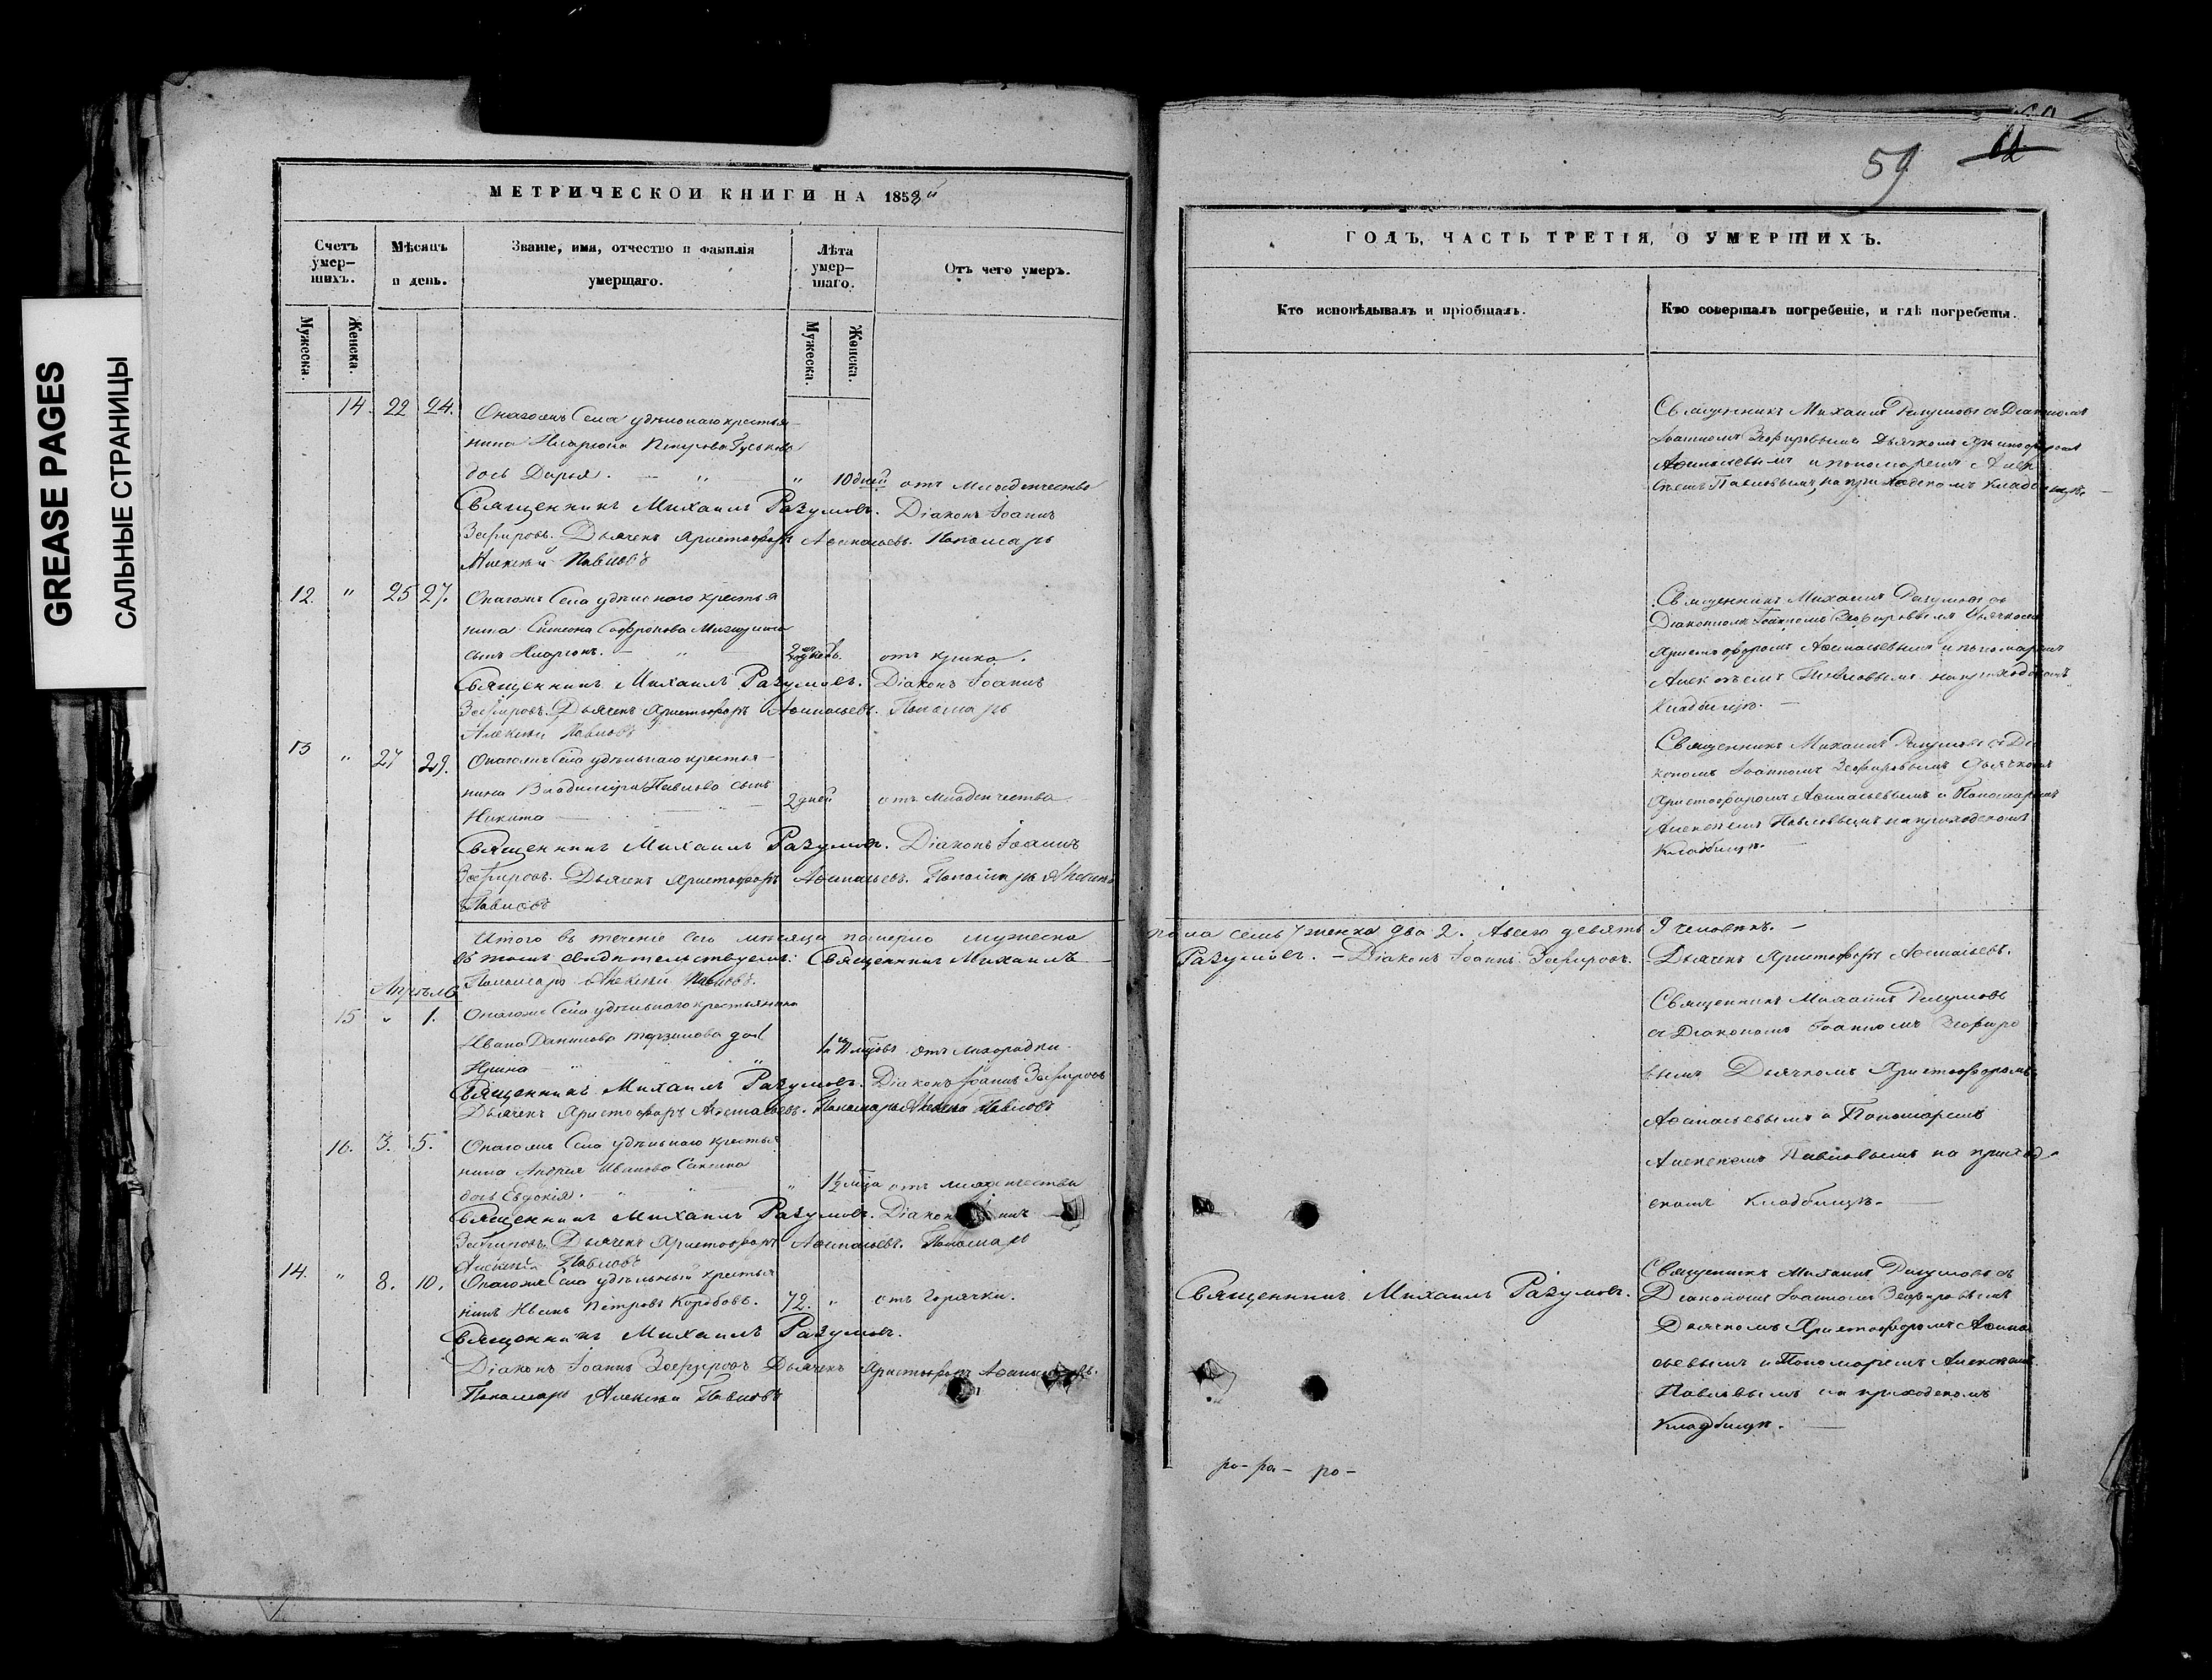 GREASE PAGES
САЛЬНЫЕ СТРАНИЦЫ
МЕТРИЧЕСКОЙ КНИГИ НА 1858й
Счетъ умер-шихъ.
Мѣсяцъ и день.
Званіе, имя, отчество и фамилія умершаго.
Лѣта умер-шаго.
Отъ чего умеръ.
Мужеска. Женска.
Мужеска. Женска.
14. 22 24. Села удѣльнаго крестья-
нина Иларіона Петрова Гуськова
дочь Дарья. — „ — „ 10 дней отъ младенчества
Священникъ Михаилъ Разумовъ. Діаконъ Іоаннъ
Зефировъ. Дьячекъ Христофоръ Афанасьевъ. Пономарь
Алексѣй Павловъ
12. „ 25 27. Села удѣльнаго крестья
нина Симеона Софронова
сынъ Иларіонъ. — „ — отъ крика.
Священникъ Михаилъ Разумовъ. Діаконъ Іоаннъ
Зефировъ. Дьячекъ Христофоръ Афанасьевъ. Пономарь
Алексѣй Павловъ
13 „ 27 29. Села удѣльнаго крестья-
нина Владимира Павлова сынъ
Никита — 2 дней отъ младенчества
Священникъ Михаилъ Разумовъ. Діаконъ Іоаннъ
Зефировъ. Дьячекъ Христофоръ Афанасьевъ. Пономарь Алексѣй
Павловъ
Итого въ теченіе сего мѣсяца померло мужеска
въ томъ свидѣтельствуемъ: Священникъ Михаилъ
Пономарь Алексѣй Павловъ.
Апрѣль
15 „ 1. Села удѣльнаго крестьянина
Ивана Данилова дочь
Ирина — „ отъ лихорадки.
Священникъ Михаилъ Разумовъ. Діаконъ Іоаннъ Зефировъ
Дьячекъ Христофоръ Афанасьевъ. Пономарь Алексѣй Павловъ
16. 3. 5. Села удѣльнаго крестья
нина Андрея Иванова
дочь Евдокія. — „ — „ 1½ мѣсца отъ младенчества
Священникъ Михаилъ Разумовъ. Діаконъ
Зефировъ. Дьячекъ Христофоръ Афанасьевъ. Пономарь
Алексѣй Павловъ
14. „ 8. 10. Села удѣльный крестья
нинъ Иванъ Петровъ Коробовъ. 72. „ отъ горячки.
Священникъ Михаилъ Разумовъ.
Діаконъ Іоаннъ Зефировъ Дьячекъ Христофоръ Афанасьевъ.
Пономарь Алексѣй Павловъ
59
ГОДЪ, ЧАСТЬ ТРЕТІЯ, О УМЕРШИХЪ.
Кто исповѣдывалъ и пріобщалъ.
Кто совершалъ погребеніе, и гдѣ погребены.
Священникъ Михаилъ Разумовъ съ Діакономъ
Іоанномъ Зефировымъ Дьячкомъ Христофоромъ
Афанасьевымъ и пономаремъ Алек
сѣемъ Павловымъ, на приходскомъ кладбищѣ. —
Священникъ Михаилъ Разумовъ съ
Діакономъ Іоанномъ Зефировымъ Дьячкомъ
Христофоромъ Афанасьевымъ и пономаремъ
Алексѣемъ Павловымъ на приходскомъ
кладбищѣ. —
Священникъ Михаилъ Разумовъ съ Діа
кономъ Іоанномъ Зефировымъ Дьячкомъ
Христофоромъ Афанасьевымъ и Пономаремъ
Алексѣемъ Павловымъ на приходскомъ
кладбищѣ. —
пола семь 7 женска два 2. Всего девять 9 человѣкъ. —
Разумовъ. — Діаконъ Іоаннъ Зефировъ. Дьячекъ Христофоръ Афанасьевъ.
Священникъ Михаилъ Разумовъ
съ Діакономъ Іоанномъ Зефиро
вымъ Дьячкомъ Христофоромъ
Афанасьевымъ и Пономаремъ
Алексѣемъ Павловымъ на приход-
скомъ кладбищѣ. —
Священникъ Михаилъ Разумовъ.
Священникъ Михаилъ Разумовъ съ
Діакономъ Іоанномъ Зефировымъ
Дьячкомъ Христофоромъ Афана
сьевымъ и Пономаремъ Алексѣемъ
Павловымъ на приходскомъ
кладбищѣ. —
ро- ра- ро-